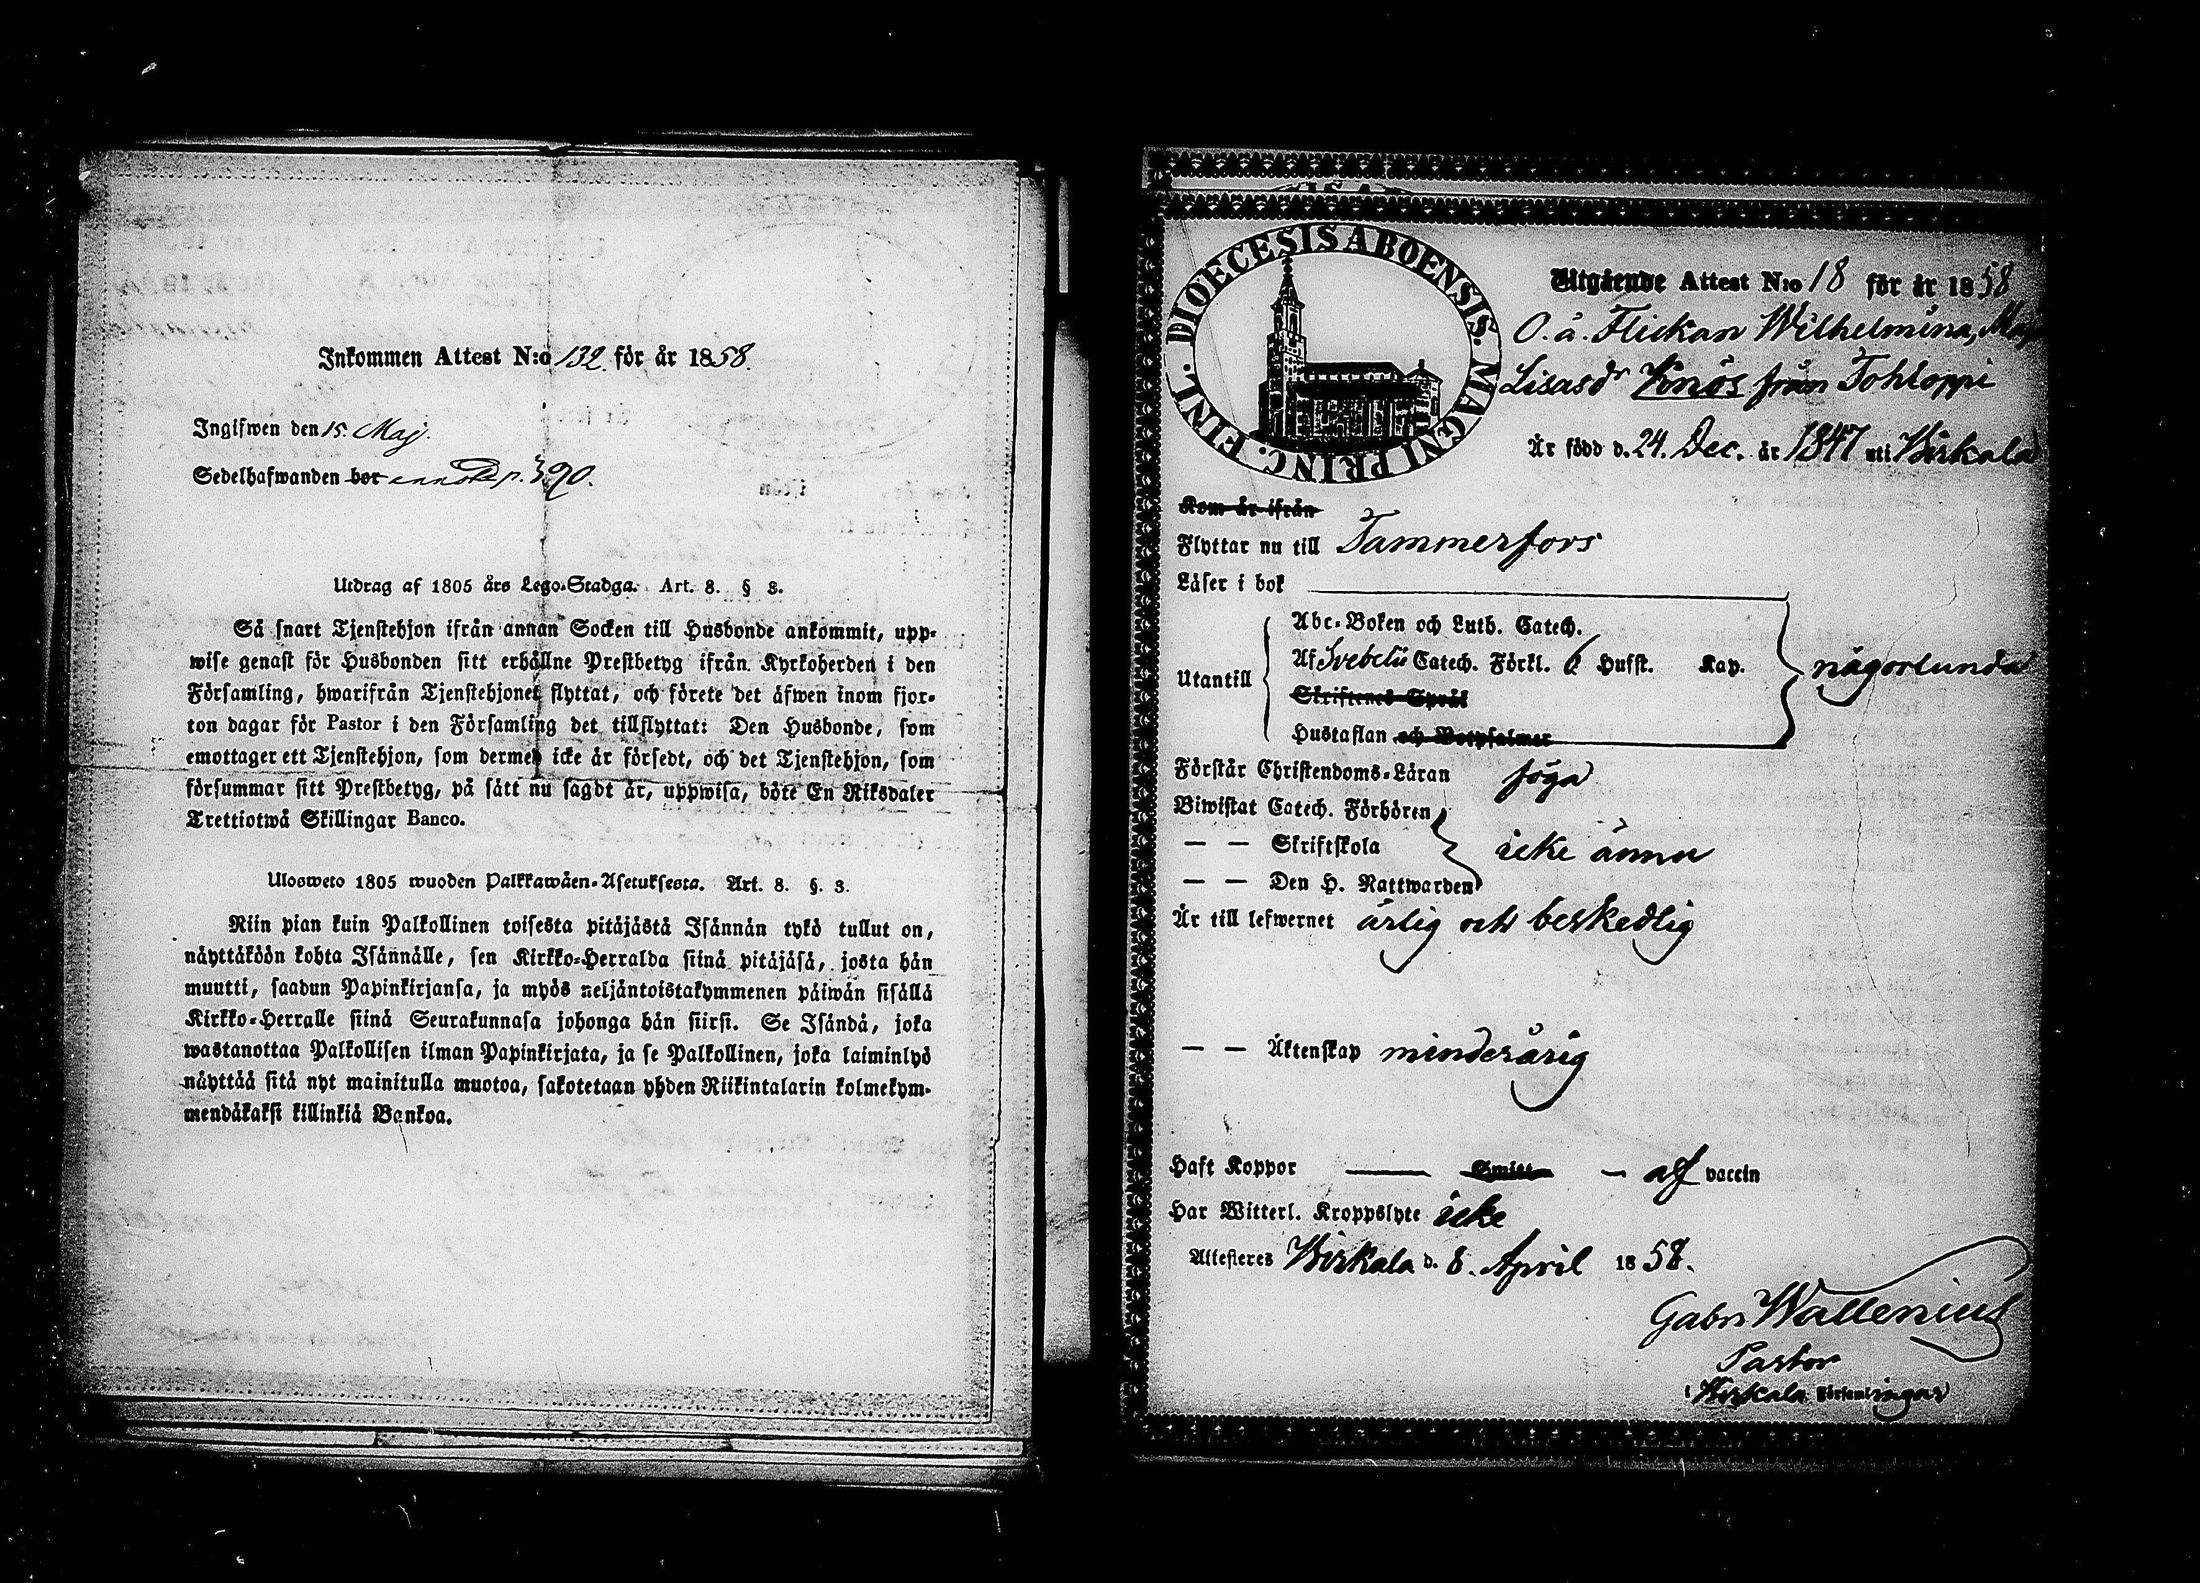 Inkommen Attest N:o 132. för år 1858.
Ingifwen den 15. Maj.
Sedelhafwanden bor p. 390.
Utdrag af 1805 års Lego-Stadga. Art. 8. § 3.
Så snart Tjenstehjon ifrån annan Socken till Husbonde ankommit, upp-
wise genast för Husbonden sitt erhållne Prestbetyg ifrån Kyrkoherden i den
Församling, hwarifrån Tjenstehjonet flyttat, och förete det äfwen inom fjor-
ton dagar för Pastor i den Församling det tillflyttat: Den Husbonde, som
emottager ett Tjenstehjon, som dermed icke är försedt, och det Tjenstehjon, som
försummar sitt Prestbetyg, på sätt nu sagdt är, uppwisa, böte En Riksdaler
Trettiotwå Skillingar Banco.
Ulosweto 1805 wuoden Palkkawäen-Asetuksesta. Art. 8. §. 3.
Niin pian kuin Palkollinen toisesta pitäjästä Isännän tykö tullut on,
näyttäköön kohta Isännälle, sen Kirkko-Herralda siinä pitäjäsä, josta hän
muutti, saadun Papinkirjansa, ja myös neljäntoistakymmenen päiwän sisällä
Kirkko-Herralle siinä Seurakunnasa johonga hän siirsi. Se Isändä, joka
wastanottaa Palkollisen ilman Papinkirjata, ja se Palkollinen, joka laiminlyö
näyttää sitä nyt mainitulla muotoa, sakotetaan yhden Riikintalarin kolmekym-
mendäkaksi killinkiä Bankoa.
DIOECESIS ABOENSIS. MAGNI PRINC. FINL.
Utgående Attest N:o 18 för år 1858
O. ä. Flickan Wilhelmina,
Lisasdr Knös från Tohloppi
Är född d. 24. Dec. år 1847 uti Birkala
Kom år ifrån
Flyttar nu till Tammerfors
Läser i bok
Utantill
Abc-Boken och Luth. Catech.
Af Svebelii Catech. Förkl. 6 Hufst. Kap. någorlunda
Skriftenes Språk
Hustaflan och Botpsalmer
Förstår Christendoms-Läran föga
Biwistat Catech. Förhören
— — Skriftskola icke ännu
— — Den H. Nattwarden
Är till lefwernet ärlig och beskedlig
— — Äktenskap minderårig
Haft Koppor — Smitt — af vaccin
Har Witterl. Kroppslyte icke
Attesteres Birkala d. 8. April 1858.
Gabr. Wallenius
Pastor
i Birkala Församlingar